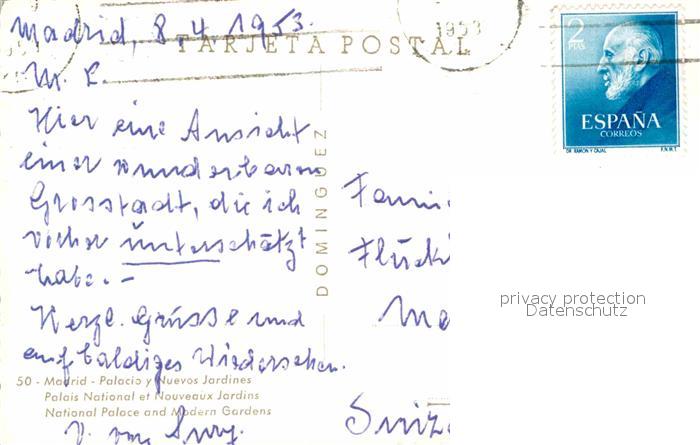 Madrid, 8.4.1953.
1953
TARJETA POSTAL
2
PTAS
ESPAÑA
CORREOS
DR. RAMON Y CAJAL F.N.M.T.
M. L.
Hier eine Ansicht
einer wunderbaren
Grosstadt, die ich
vorher unterschätzt
habe. -
Herzl. Grüsse und
auf baldiges Wiedersehen.
DOMINGUEZ
Fami
Flücki
Suiz
privacy protection
Datenschutz
50 - Madrid - Palacio y Nuevos Jardines
Palais National et Nouveaux Jardins
National Palace and Modern Gardens